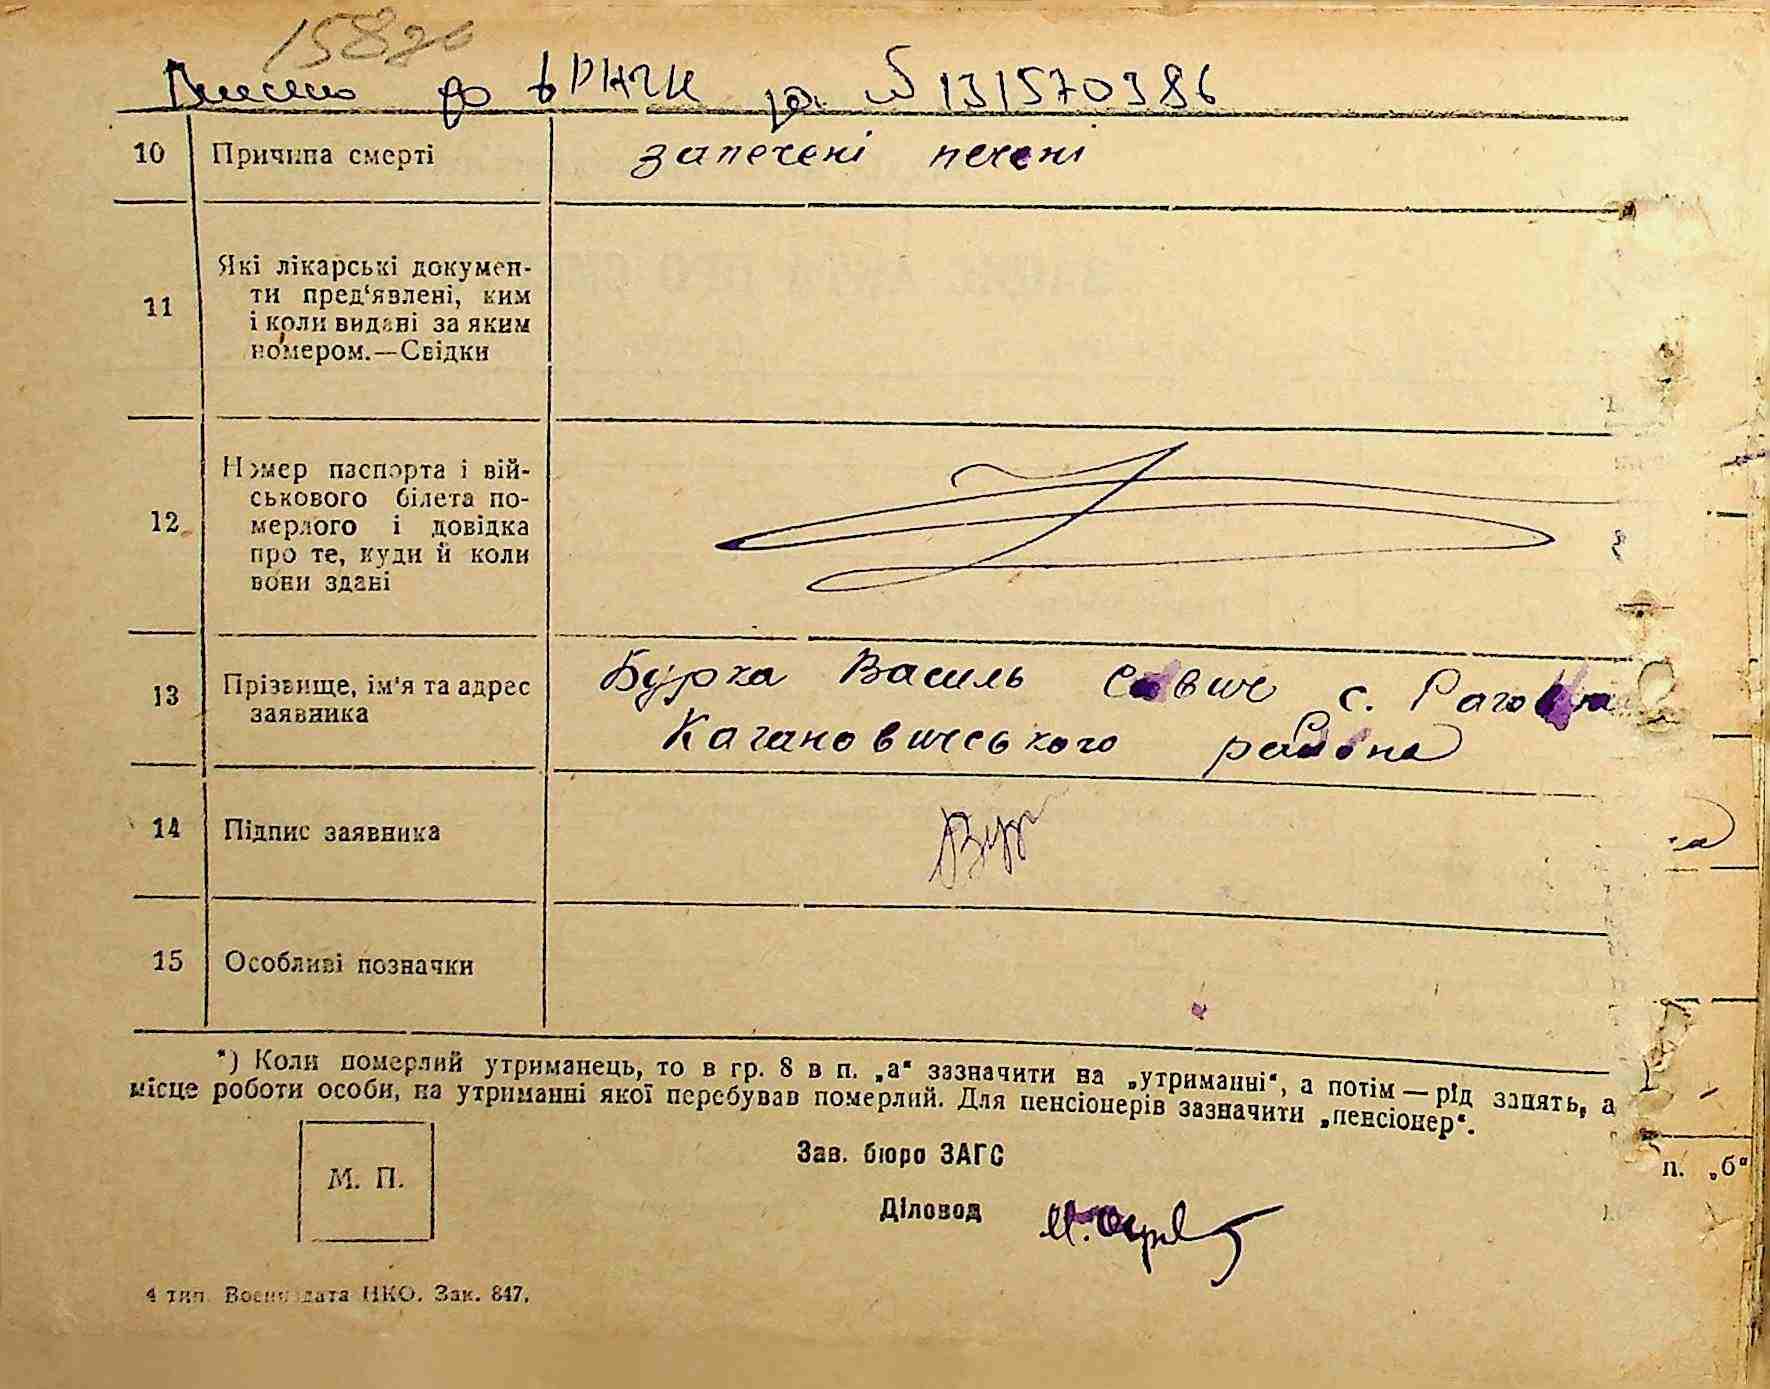 158
Внесено до ДРАЦС за № 131570386
10 Причина смерті запечені печені
11 Які лікарські документи пред‘явлені, ким
і коли видані за яким
номером.—Свідки
12 Номер паспорта і вій-
ськового білета по-
мерлого і довідка
про те, куди й коли
вони здані
13 Прізвище, ім‘я та адрес
заявника
Бурка Василь Савич с.
Кагановичського района
14 Підпис заявника
15 Особливі позначки
*) Коли померлий утриманець, то в гр. 8 в п. „а“ зазначити на „утриманні“, а потім — рід занять, а
місце роботи особи, на утриманні якої перебував померлий. Для пенсіонерів зазначити „пенсіонер“.
М. П.
Зав. бюро ЗАГС
Діловод
4 тип. Воениздата НКО. Зак. 847.
п. „б“